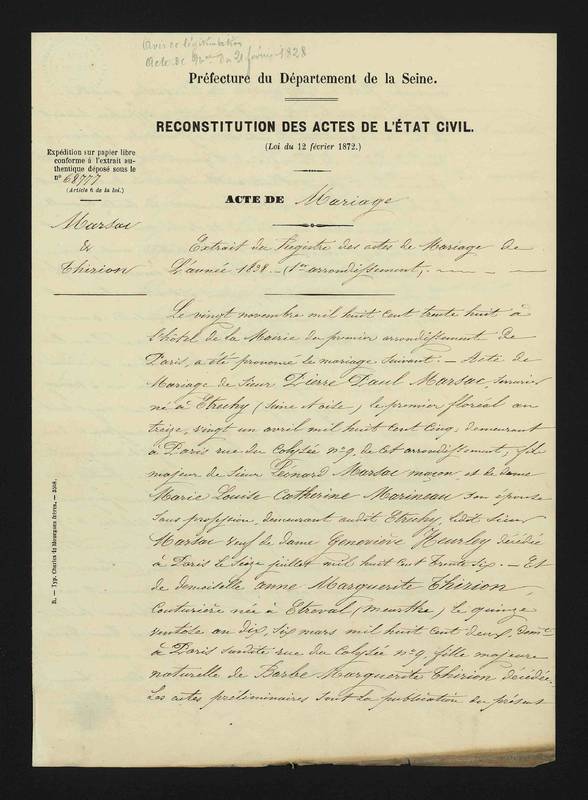 Avis de légitimation
Acte de du 21 février 1828
Préfecture du Département de la Seine.
RECONSTITUTION DES ACTES DE L'ÉTAT CIVIL.
(Loi du 12 février 1872.)
Expédition sur papier libre
conforme à l'extrait au-
thentique déposé sous le
n° 68777
(Article 6 de la loi.)
ACTE DE Mariage
Marsac
&
Thirion
Extrait du Registre des actes de Mariage de
L'année 1838 - (1er arrondissement,
Le vingt novembre mil huit cent trente huit à
l'hôtel de la Mairie du premier arrondissement de
Paris, a été prononcé le mariage suivant: - Acte de
Mariage de Sieur Pierre Paul Marsac, serrurier
né à Etrechy (Seine & Oise), le premier floréal an
treize, vingt un avril mil huit cent cinq, demeurant
à Paris rue du Colysée n° 9, de cet arrondissement, fils
majeur de Sieur Léonard Marsac maçon, et de dame
Marie Louise Catherine Marineau son épouse
sans profession, demeurant audit Etrechy, ledit Sieur
Marsac veuf de dame Geneviève Heurley décédée
à Paris le seize juillet mil huit cent trente six. - Et
de demoiselle Anne Marguerite Thirion,
Couturière née à Etreval (Meurthe) le quinze
ventôse an dix, six mars mil huit cent deux, demt
à Paris susdite rue du Colysée n° 9, fille majeure
naturelle de Barbe Marguerite Thirion décédée.
Les actes préliminaires sont la publication du présent
R. — Typ. Charles de Mourgues frères. — 3508.